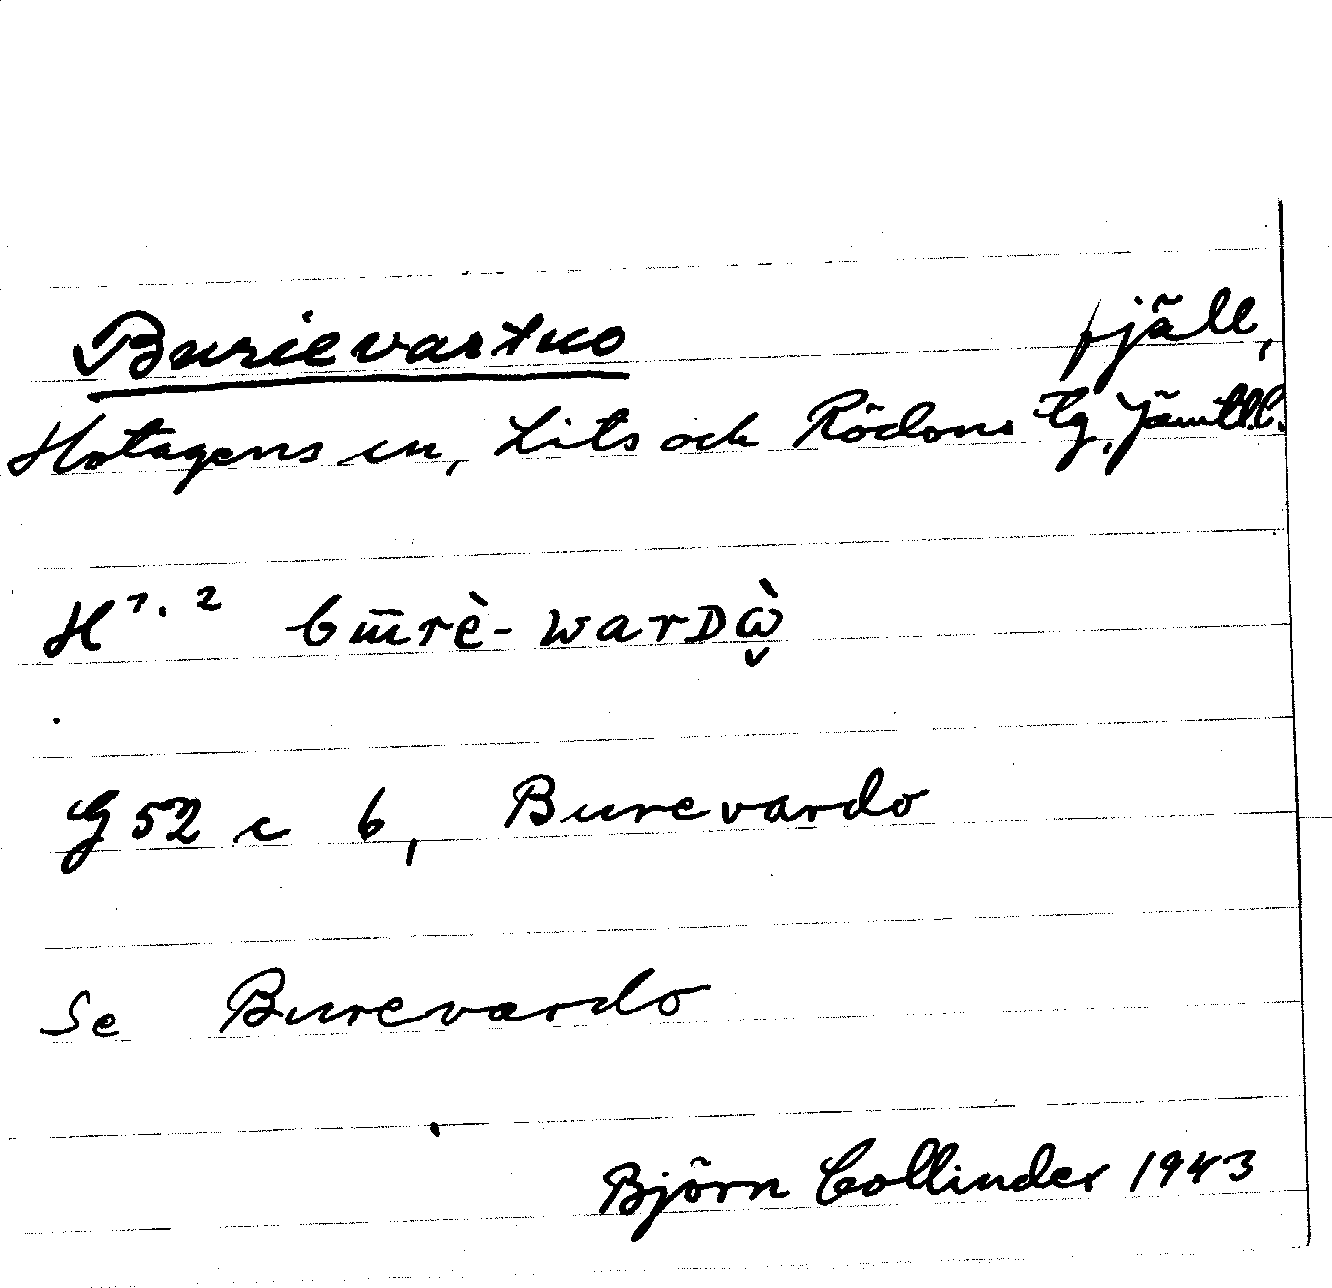 Burievartuo fjäll,
Hotagens sn, Lits och Rödöns tg, Jämtl.l.
H 1. 2 bɯ̄rè-warᴅὼ̬
G 52 c 6, Burevardo
Se Burevardo
Björn Collinder 1943